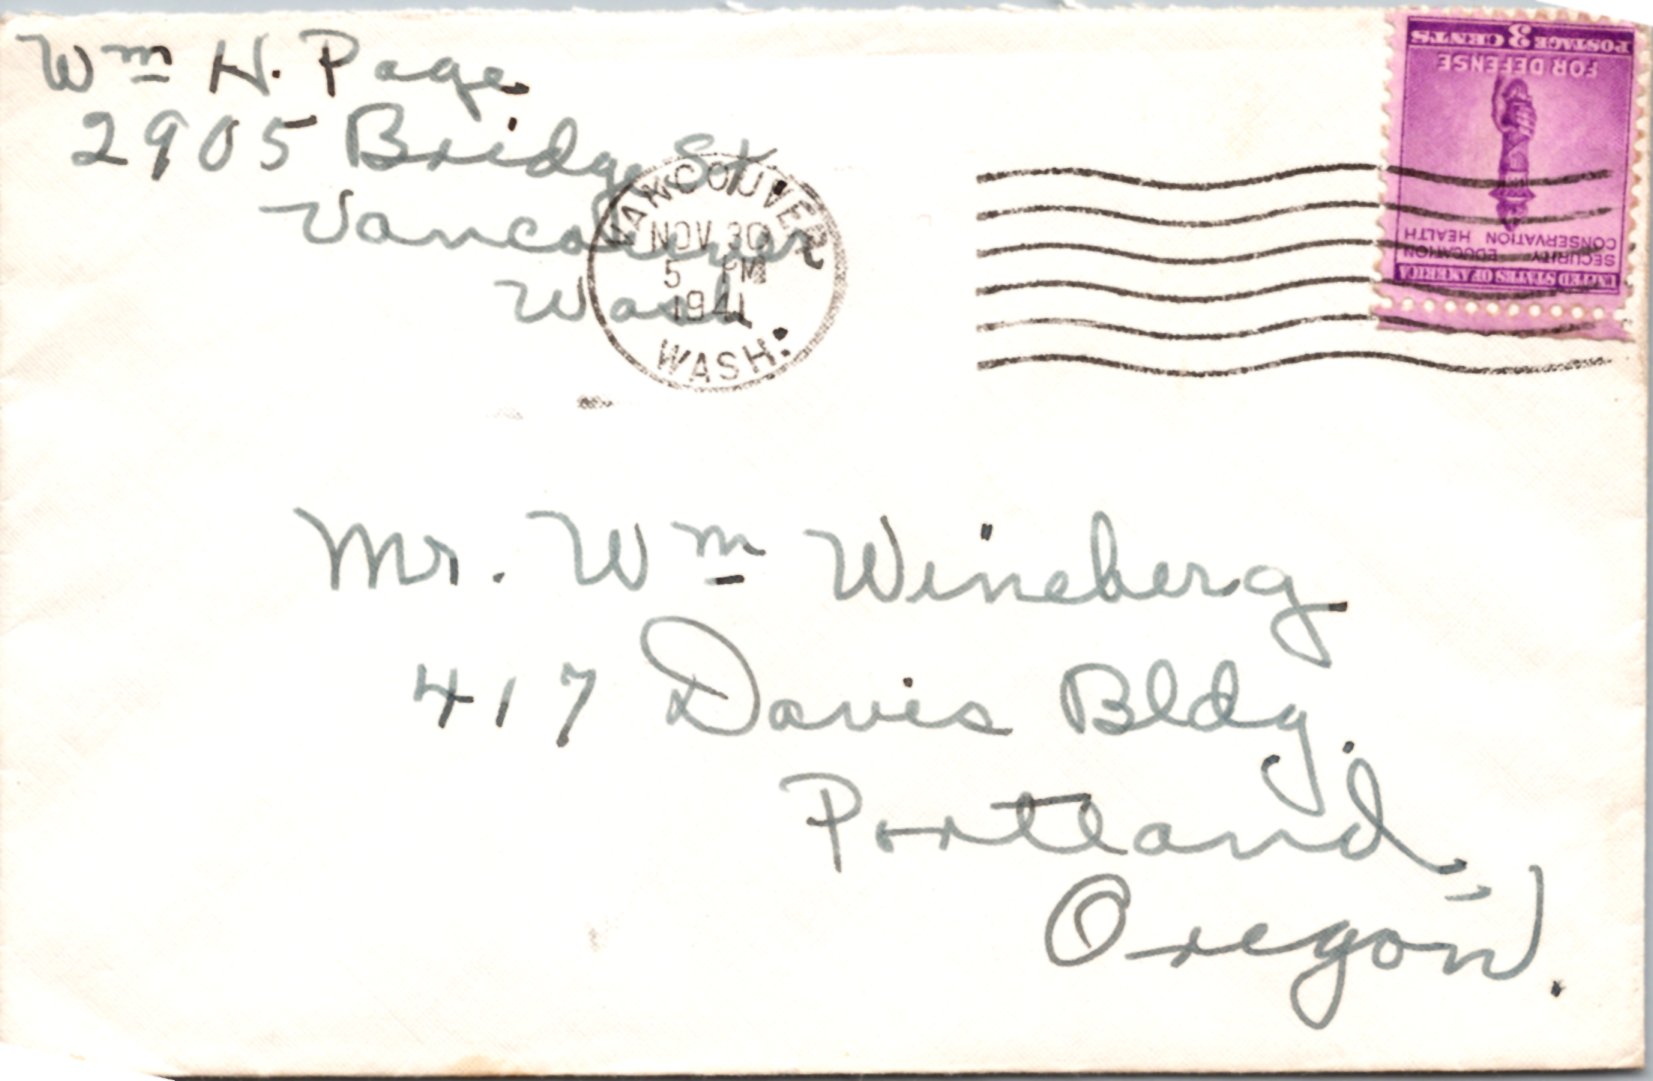 Wm H. Page
2905 Bridge St.
Vancouver
Wash.
VANCOUVER
NOV 30
5 PM
1941
WASH.
POSTAGE 3 CENTS
FOR DEFENSE
SECURITY EDUCATION
CONSERVATION HEALTH
UNITED STATES OF AMERICA
Mr. Wm Wineberg
417 Davis Bldg.
Portland,
Oregon.